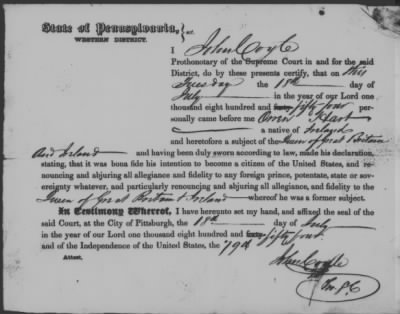 State of Pennsylvania, } sct.
WESTERN DISTRICT.
I John Coyle
Prothonotary of the Supreme Court in and for the said
District, do by these presents certify, that on this
Tuesday the 18th day of
July in the year of our Lord one
thousand eight hundred and forty fifty four per-
sonally came before me Owen
a native of Ireland
and heretofore a subject of the Queen of Great Britain
And Ireland and having been duly sworn according to law, made his declaration,
stating, that it was bona fide his intention to become a citizen of the United States, and re-
nouncing and abjuring all allegiance and fidelity to any foreign prince, potentate, state or sov-
ereignty whatever, and particularly renouncing and abjuring all allegiance, and fidelity to the
Queen of Great Britain & Ireland whereof he was a former subject.
In Testimony Whereof, I have hereunto set my hand, and affixed the seal of the
said Court, at the City of Pittsburgh, the 18th day of July
in the year of our Lord one thousand eight hundred and forty fifty four.
and of the Independence of the United States, the 79th
John Coyle
Attest.